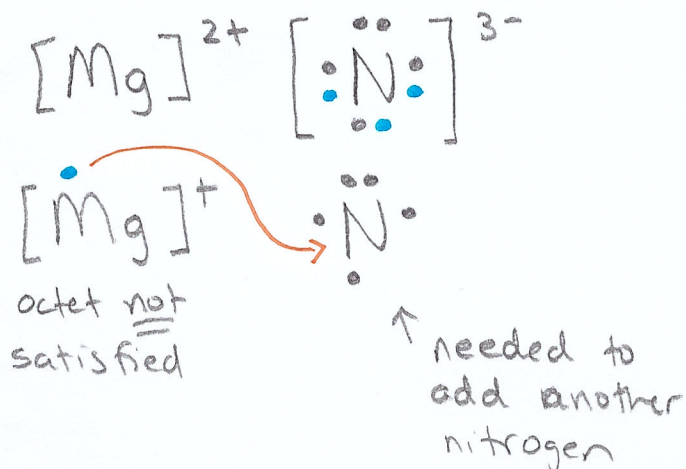 [Mg]²⁺ [N]³⁻
[Mg]⁺ N
octet not
satisfied
↑ needed to
add another
nitrogen